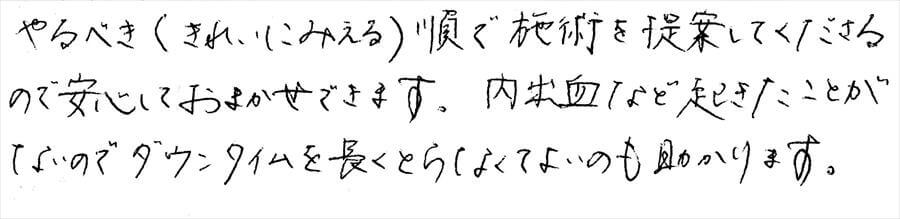 やるべき(きれいにみえる)順で施術を提案してくださる
ので安心しておまかせできます。内出血など起きたことが
ないのでダウンタイムを長くとらなくてよいのも助かります。